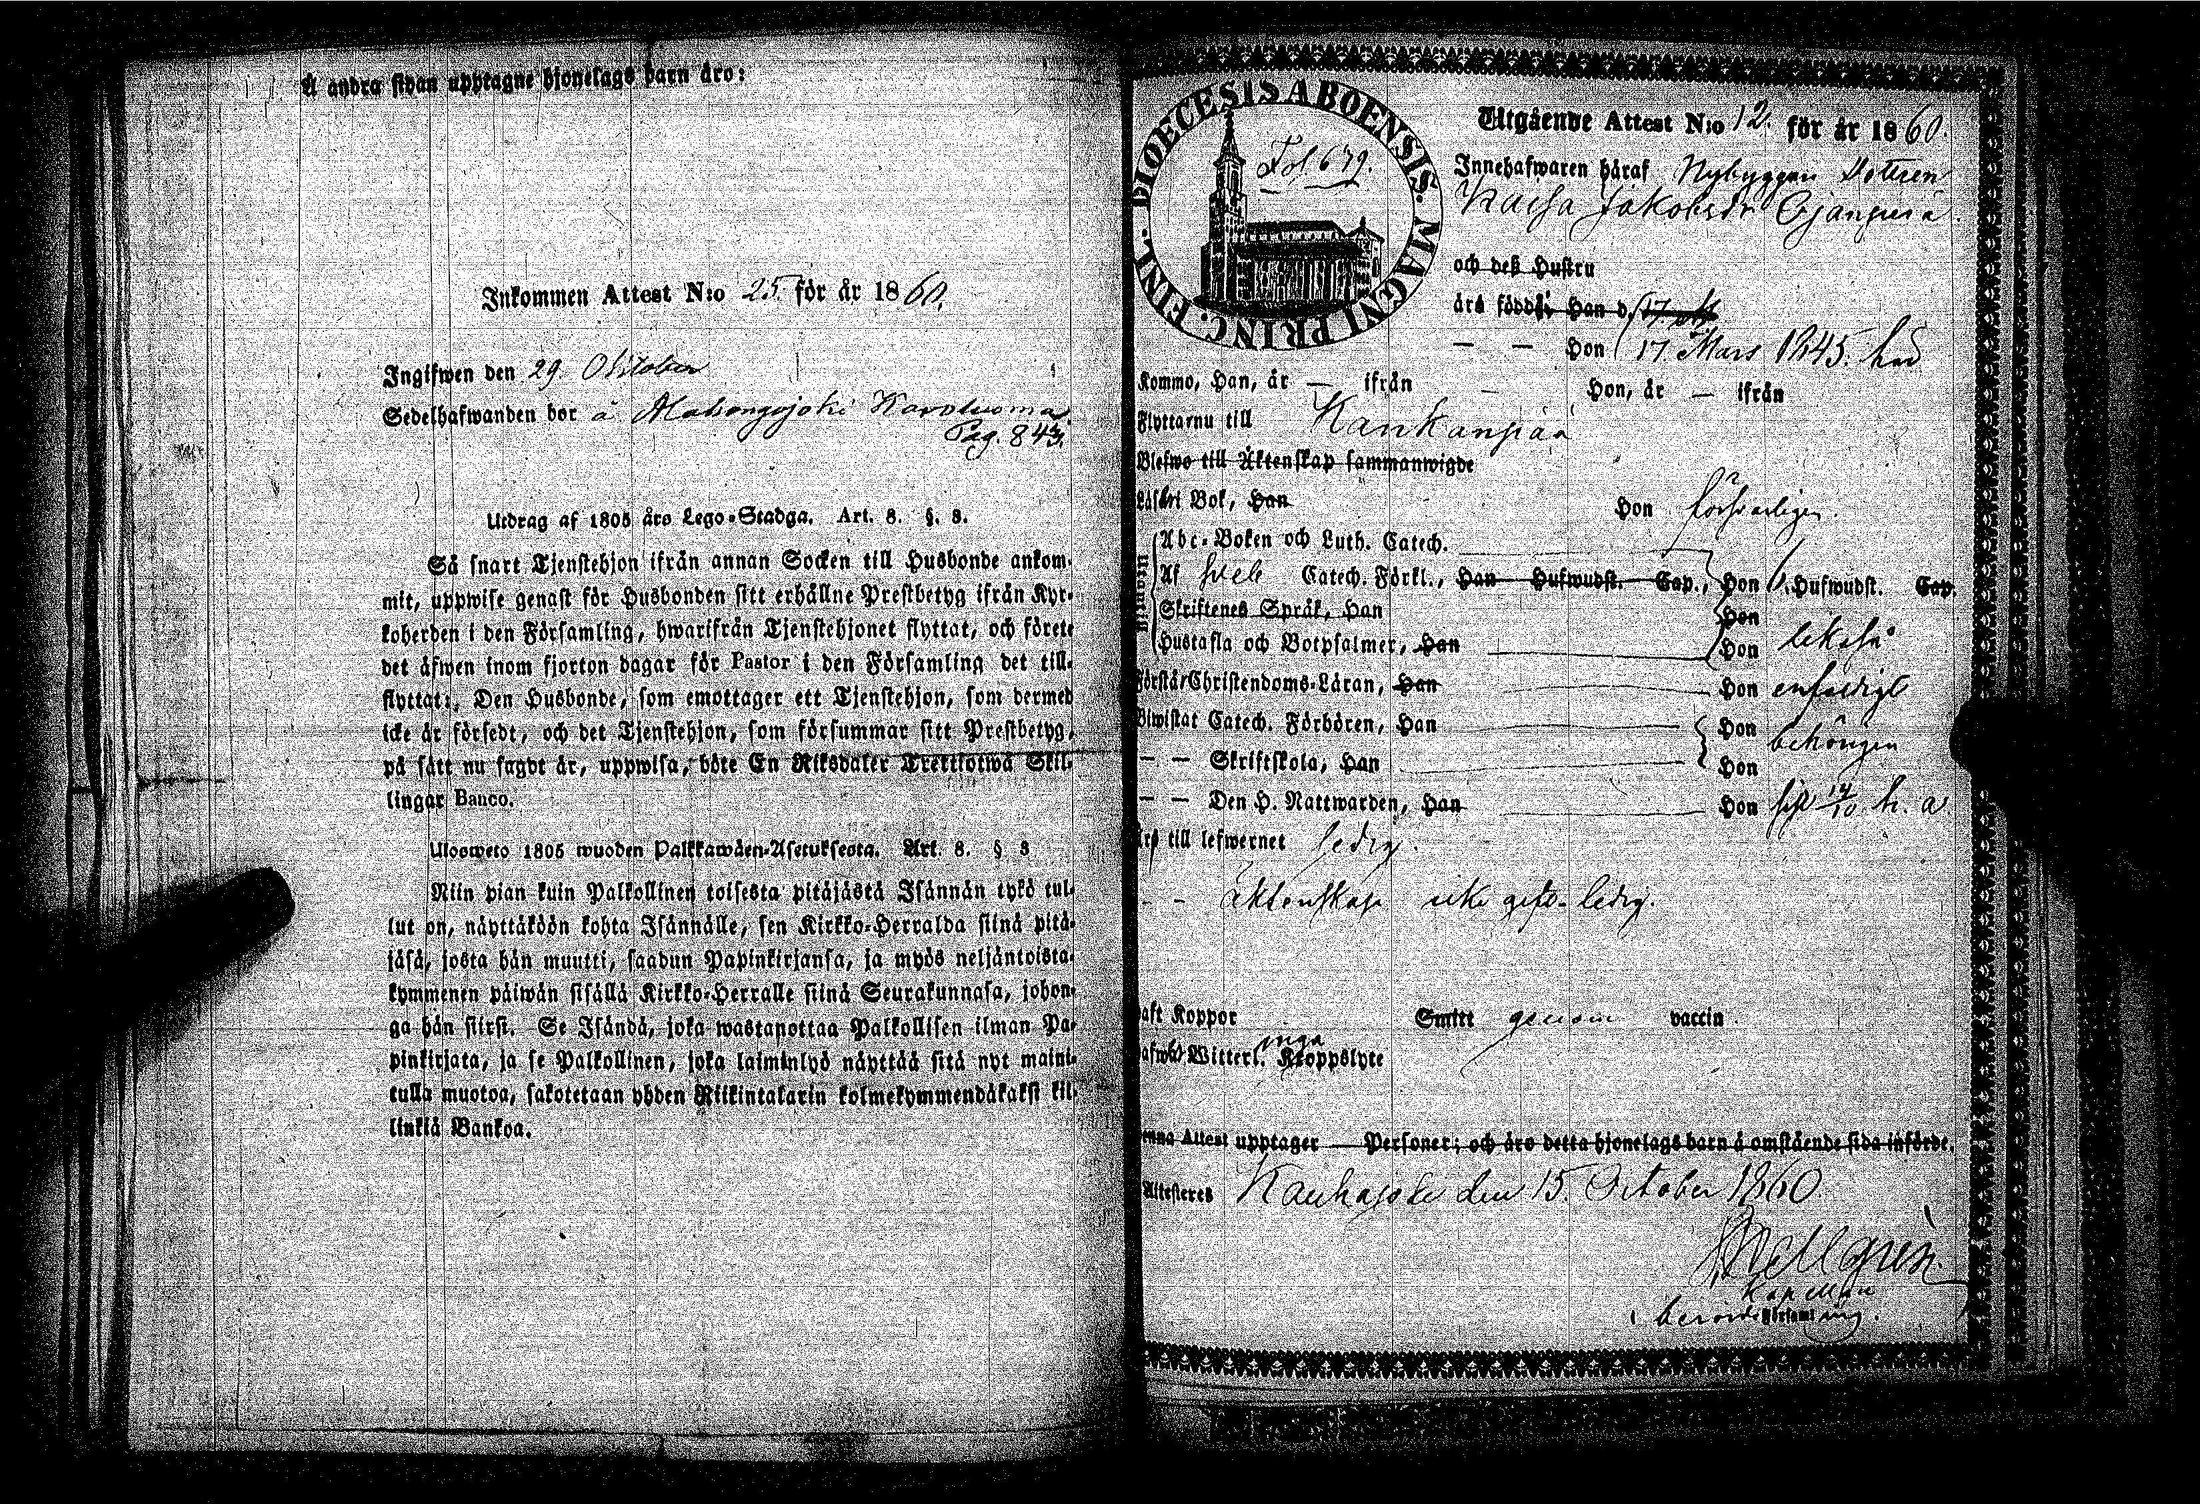 Å andra sidan upptagne hjonelags barn äro:
Inkommen Attest N:o 25. för år 1860.
Ingifwen den 29. Oktober
Sedelhafwanden bor å Karoluoma
Pag. 843.
Utdrag af 1805 års Lego-Stadga. Art. 8. §. 8.
Så snart Tjenstehjon ifrån annan Socken till Husbonde ankom-
mit, uppwise genast för Husbonden sitt erhållne Prestbetyg ifrån Kyr-
koherden i den Församling, hwarifrån Tjenstehjonet flyttat, och förete
det äfwen inom fjorton dagar för Pastor i den Församling det till-
flyttat. Den Husbonde, som emottager ett Tjenstehjon, som dermed
icke är försedt, och det Tjenstehjon, som försummar sitt Prestbetyg,
på sätt nu sagdt är, uppwisa, böte En Riksdaler Trettiotwå Skil-
lingar Banco.
Ulosweto 1805 wuoden Palkkawäen-Asetuksesta. Art. 8. § 8
Niin pian kuin Palkollinen toisesta pitäjästä Isännän tykö tul-
lut on, näyttäköön kohta Isännälle, sen Kirkko-Herralda siinä pitä-
jäsä, josta hän muutti, saadun Papinkirjansa, ja myös neljäntoista-
kymmenen päiwän sisällä Kirkko-Herralle siinä Seurakunnasa, johon-
ga hän siirsi. Se Isändä, joka wastanottaa Palkollisen ilman Pa-
pinkirjata, ja se Palkollinen, joka laiminlyö näyttää sitä nyt maini-
tulla muotoa, sakotetaan yhden Riikintalarin kolmekymmendäkaksi kil-
linkiä Bankoa.
DIOECESIS ABOENSIS. MAGNI PRINC. FINL.
Fol 679.
Utgående Attest N:o 12. för år 1860.
Innehafwaren häraf Nybyggare Dottren
Kaisa Jakobsdr
och deß Hustru
äro födde, Han d. 17
— — Hon 17 Mars 1845. här
Kommo, Han, år — ifrån — Hon, år — ifrån
Flyttar nu till Kankanpää
Blefwo till Äktenskap sammanwigde
Läser i Bok, Han Hon försvarligen.
Abc-Boken och Luth. Catech.
Af Sveb Catech. Förkl., Han Hufwudst. Cap., Hon 6. Hufwudst. Cap.
Skriftenes Språk, Han Hon
Hustafla och Botpsalmer, Han Hon likaså
Förstår Christendoms-Läran, Han Hon enfaldigt
Biwistat Catech. Förhören, Han Hon behörigen
— — Skriftskola, Han Hon
— — Den H. Nattwarden, Han Hon sist 14/10 h. a.
Är till lefwernet ledig.
— — äktenskap icke gift. ledig.
haft Koppor Smitt genom vaccin
hafwer Witterl. inga Kroppslyte
Denna Attest upptager — Personer; och äro detta hjonelags barn å omstående sida införde.
Attesteres Kauhajoki den 15. October 1860.
Kapellan
berörde Församling.